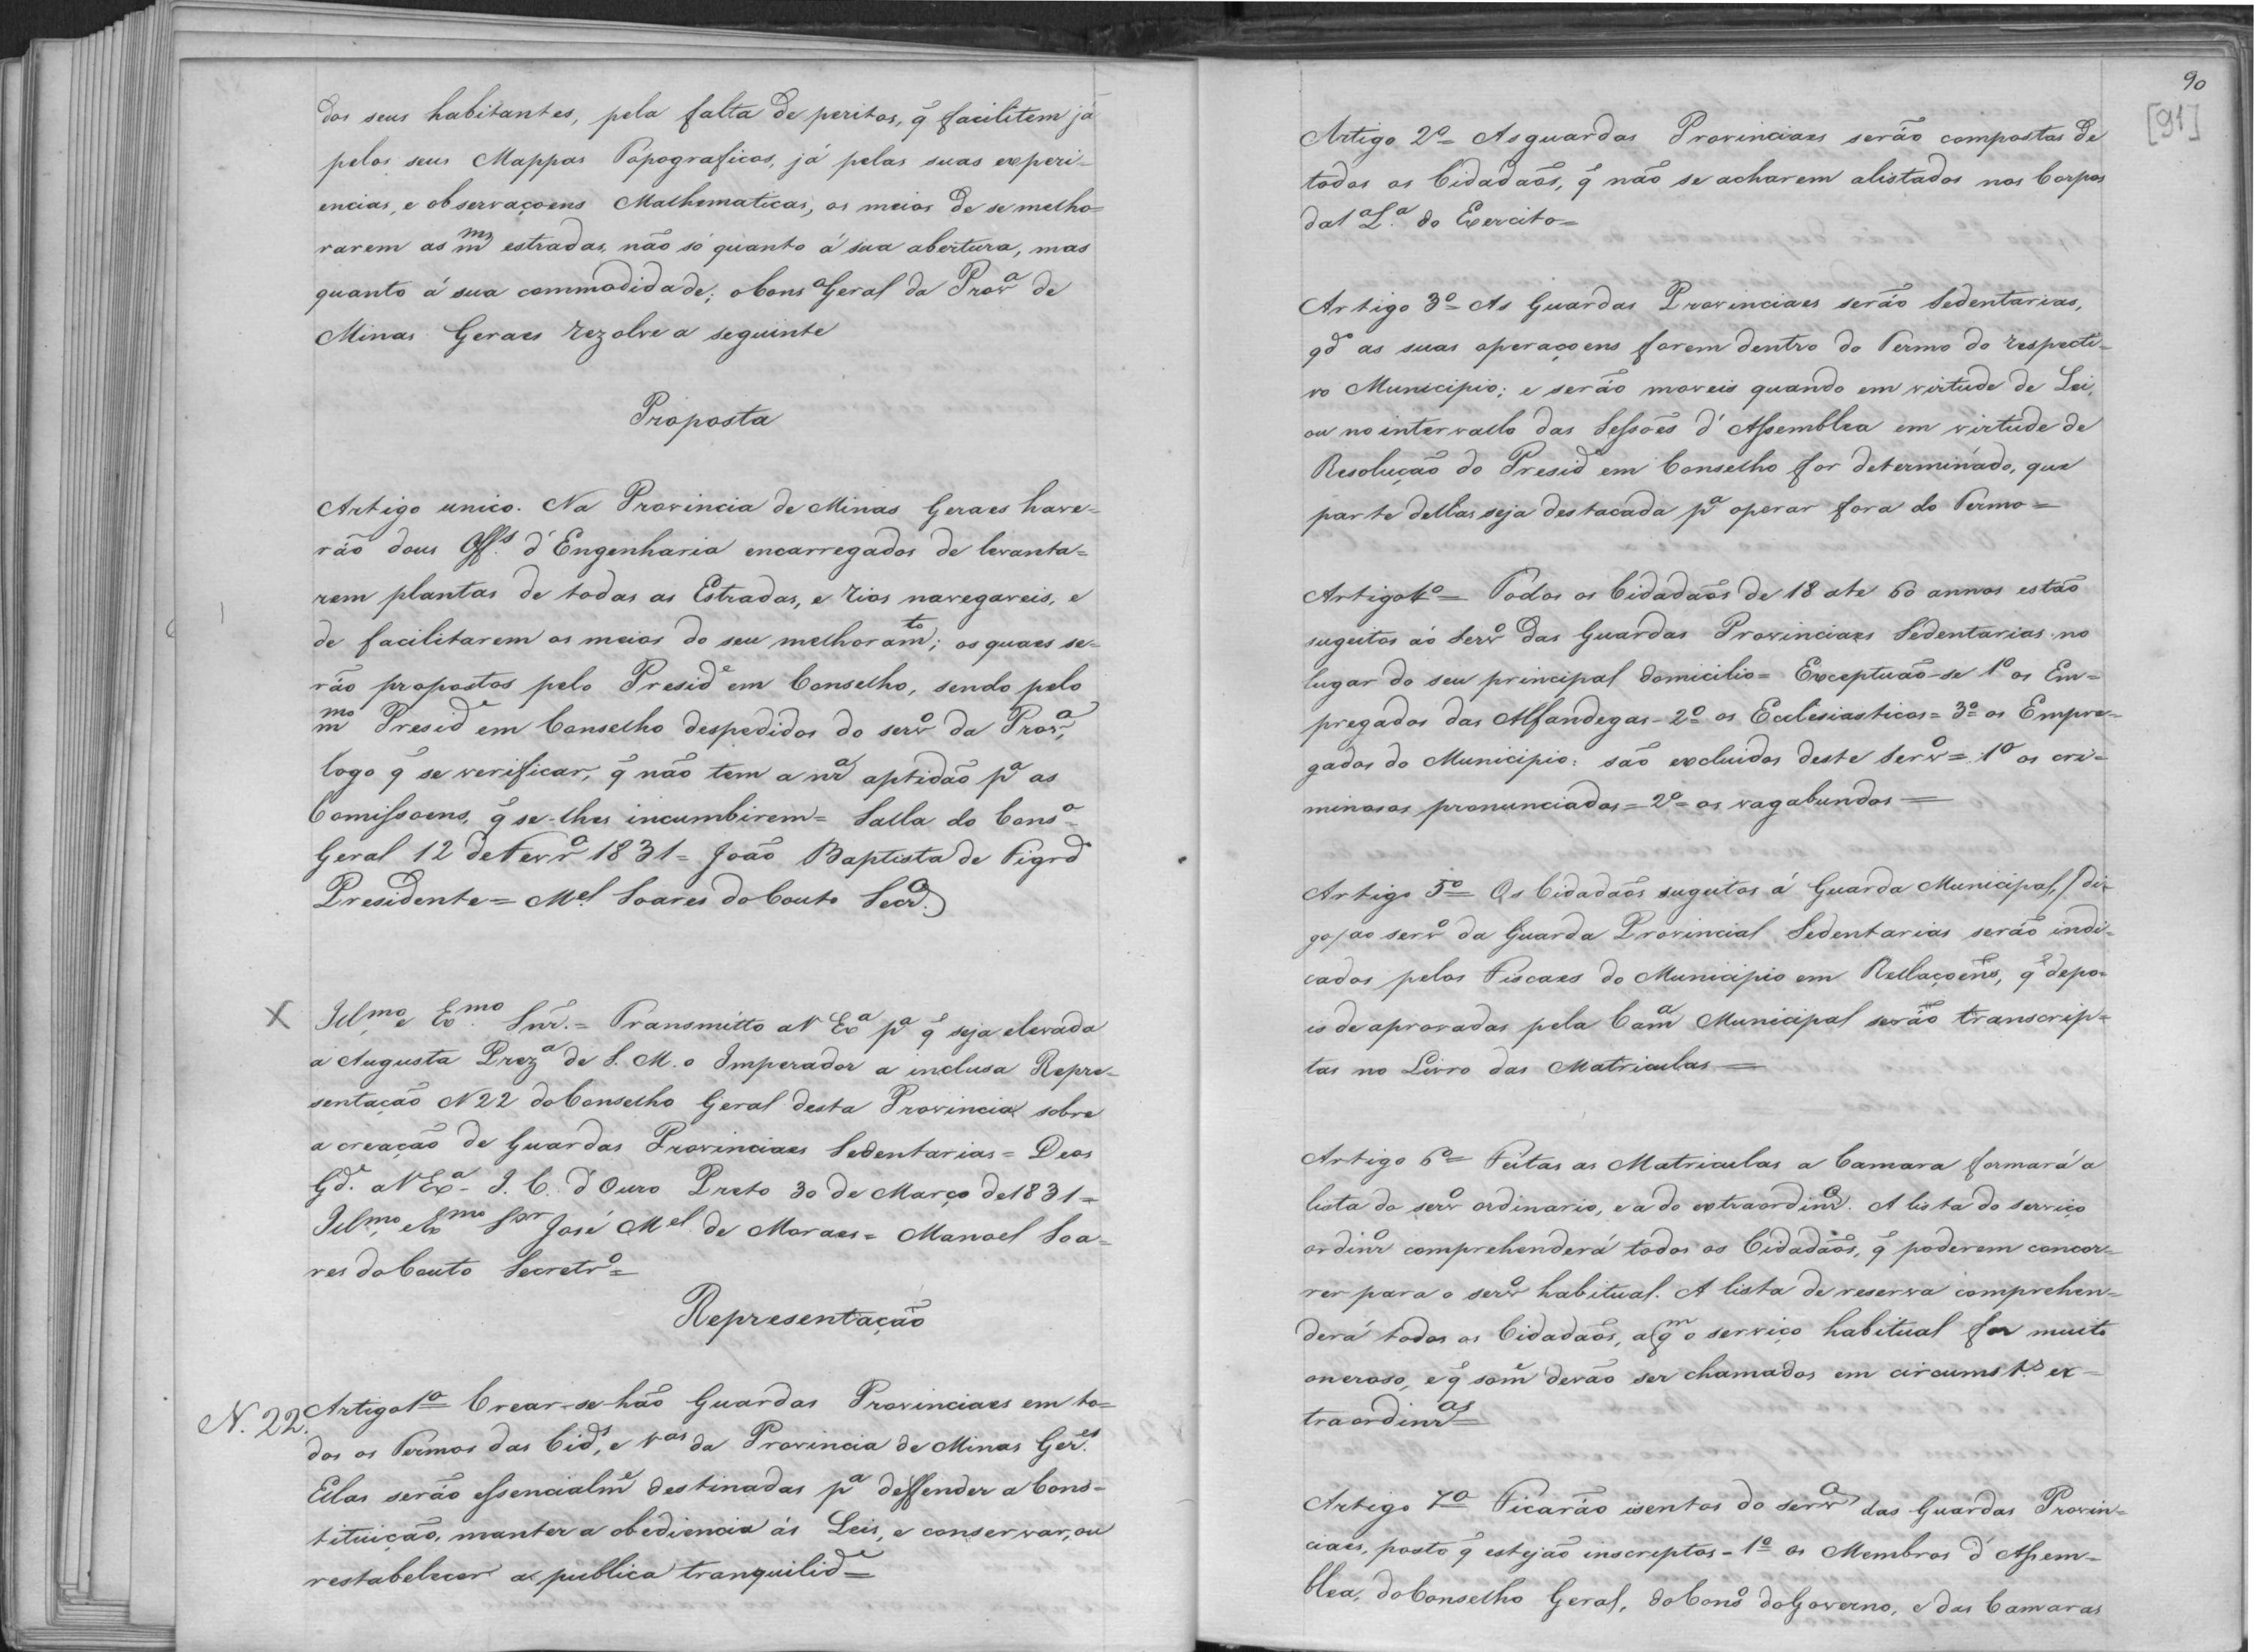 dos seus habitantes, pela falta de peritos, q̃ facilitem já
pelos seus Mappas Topograficos, já pelas suas experi-
encias, e observaçoens Mathematicas, os meios de se melho=
rarem as mmas estradas, não só quanto á sua abertura, mas
quanto á sua commodidade; o Conso Geral da Prova de
Minas Geraes rezolve a seguinte
Proposta
Artigo unico. Na Provincia de Minas Geraes have=
rão dous Offs. d'Engenharia encarregados de levanta=
rem plantas de todas as Estradas, e rios navegaveis, e
de facilitarem os meios do seu melhoramto; os quaes se=
rão propostos pelo Preside em Conselho, sendo pelo
mmo Preside em Conselho despedidos do servo da Prova,
logo q̃ se verificar, q̃ não tem a nra aptidão pa as
Comissoens, q̃ se-lhes incumbirem= Salla do Conso=
Geral 12 de Fevro 1831= João Baptista de Figrdo
Presidente= Mel Soares do Couto Secro.
X Illmo e Exmo. Snr.= Transmitto a V Exa pa q̃ seja elevada
a Augusta Preza de S. M. o Imperador a inclusa Repre-
sentação N 22 do Conselho Geral desta Provincia sobre
a creação de Guardas Provinciaes Sedentarias= Deos
Gde. a V Exa- I. C. d'Ouro Preto 30 de Março de 1831=
Illmo, e Exmo Snr José Mel de Moraes= Manoel Soa=
res do Couto Secretro=
Representação
N. 22. Artigo 1o Crear-se-hão Guardas Provinciaes em to=
dos os Termos das Cids, e Vas da Provincia de Minas Geres.
Ellas serão essencialme destinadas pa deffender a Cons-
tituição, manter a obediencia ás Leis, e conservar, ou
restabelecer a publica tranquilide=
90
[91]
Artigo 2o= As guardas Provinciaes serão compostas de
todos os Cidadãos, q̃ não se acharem alistados nos Corpos
da 1a L.a do Exercito=
Artigo 3o= As Guardas Provinciaes serão Sedentarias,
qdo as suas operaçoens forem dentro do Termo do respecti-
vo Municipio; e serão moveis quando em virtude de Lei,
ou no intervallo das Sessões d'Assemblea em virtude de
Resolução do Preside em Conselho for determinado, que
parte dellas seja destacada pa operar fora do Termo=
Artigo 4o= Todos os Cidadãos de 18 ate 60 annos estão
sugeitos ao Servo das Guardas Provinciaes Sedentarias no
lugar do seu principal domicilio= Exceptuão-se 1o os Em=
pregados das Alfandegas- 2o os Ecclesiasticos= 3o os Empre-
gados do Municipio: são excluidos deste Servo= 1o os cri=
minosos pronunciados= 2o= os vagabundos=
Artigo 5o= Os Cidadãos sugeitos á Guarda Municipal, / di-
go / ao servo da Guarda Provincial Sedentarias serão indi-
cados pelos Fiscaes do Municipio em Rellaçoens, q̃ depo-
is de aprovadas pela Cama Municipal serão transcrip=
tas no Livro das Matriculas=
Artigo 6o= Feitas as Matriculas a Camara formará a
lista do servo ordinario, e a do extraordinro. A lista do serviço
ordinro comprehenderá todos os Cidadãos, q̃ poderem concor-
rer para o servo habitual. A lista de reserva comprehen-
derá todos os Cidadãos, a qm o serviço habitual for muito
oneroso, e q̃ some devão ser chamados em circumsts. ex-
traordinras=
Artigo 7o Ficarão isentos do servo das Guardas Provin-
ciaes, posto q̃ estejão inscriptos= 1o os Membros d'Assem-
blea, do Conselho Geral, do Conso do Governo, e das Camaras